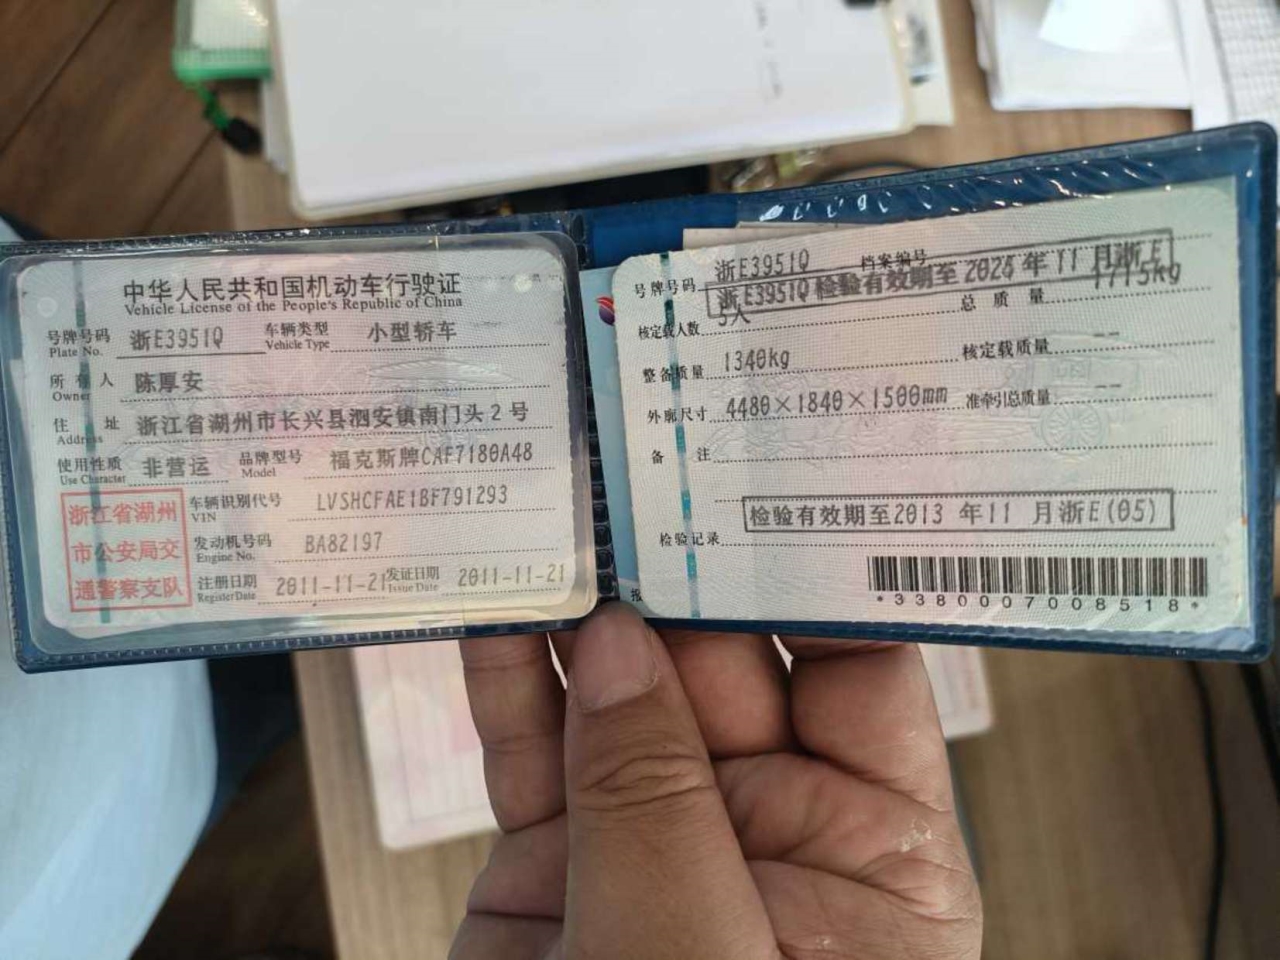 中华人民共和国机动车行驶证
Vehicle License of the People's Republic of China
号牌号码 浙E3951Q 车辆类型 小型轿车
Plate No. Vehicle Type
所有人 陈厚安
Owner
住址 浙江省湖州市长兴县泗安镇南门头2号
Address
使用性质 非营运 品牌型号 福克斯牌CAF7180A48
Use Character Model
浙江省湖州
市公安局交
通警察支队
车辆识别代号 LVSHCFAE1BF791293
VIN
发动机号码 BA82197
Engine No.
注册日期 2011-11-21 发证日期 2011-11-21
Register Date Issue Date
号牌号码 浙E3951Q 档案编号
浙E3951Q 检验有效期至 年11月浙E
核定载人数 5人 总质量 1715kg
整备质量 1340kg 核定载质量 --
外廓尺寸 4480×1840×1500mm 准牵引总质量 --
备注
检验有效期至2013 年11 月浙E(05)
检验记录
*3380007008518*